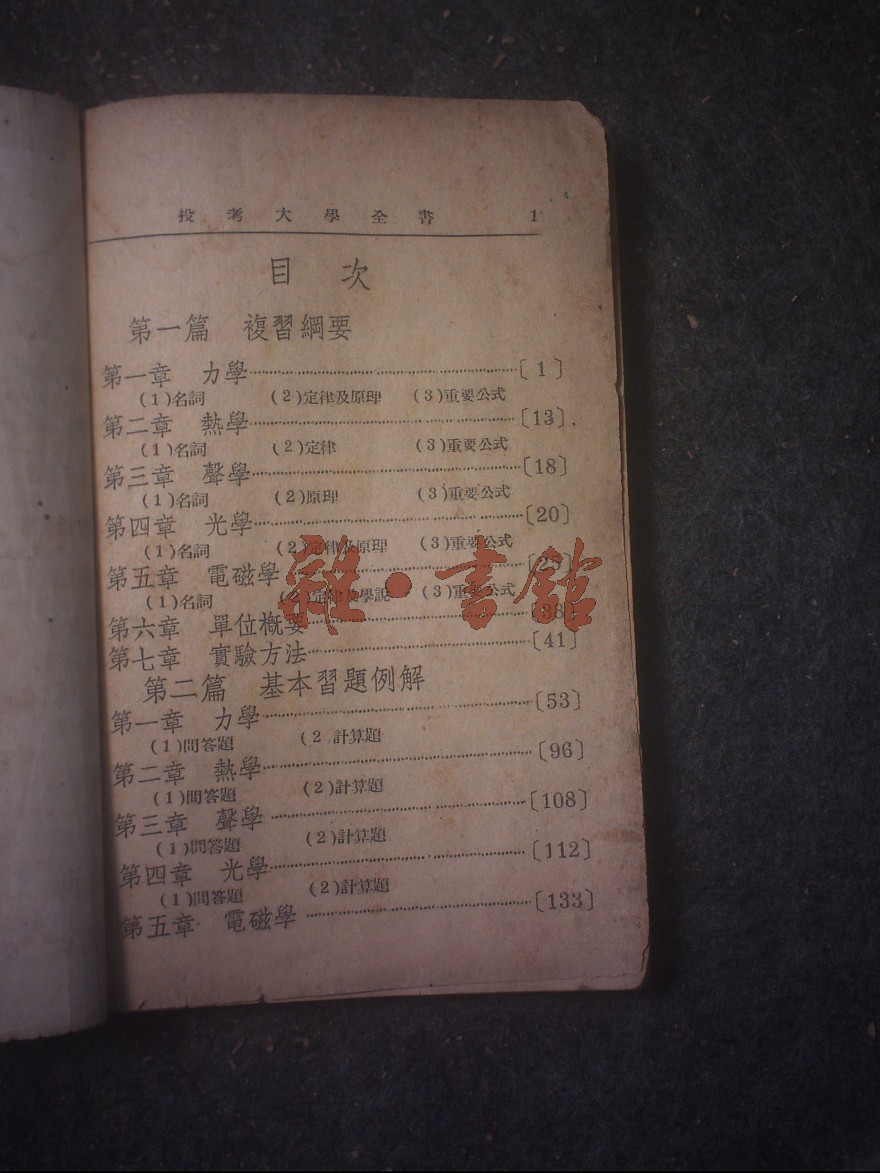 投考大學全書 1
目次
第一篇 複習綱要
第一章 力學〔1〕
(1)名詞 (2)定律及原理 (3)重要公式
第二章 熱學〔13〕
(1)名詞 (2)定律 (3)重要公式
第三章 聲學〔18〕
(1)名詞 (2)原理 (3)重要公式
第四章 光學〔20〕
(1)名詞 (2)定律及原理 (3)重要公式
第五章 電磁學
(1)名詞 (2)定律及學說 (3)重要公式
雜·書館
第六章 單位概要
第七章 實驗方法〔41〕
第二篇 基本習題例解
第一章 力學〔53〕
(1)問答題 (2 計算題
第二章 熱學〔96〕
(1)問答題 (2)計算題
第三章 聲學〔108〕
(1)問答題 (2)計算題
第四章 光學〔112〕
(1)問答題 (2)計算題
第五章 電磁學〔133〕